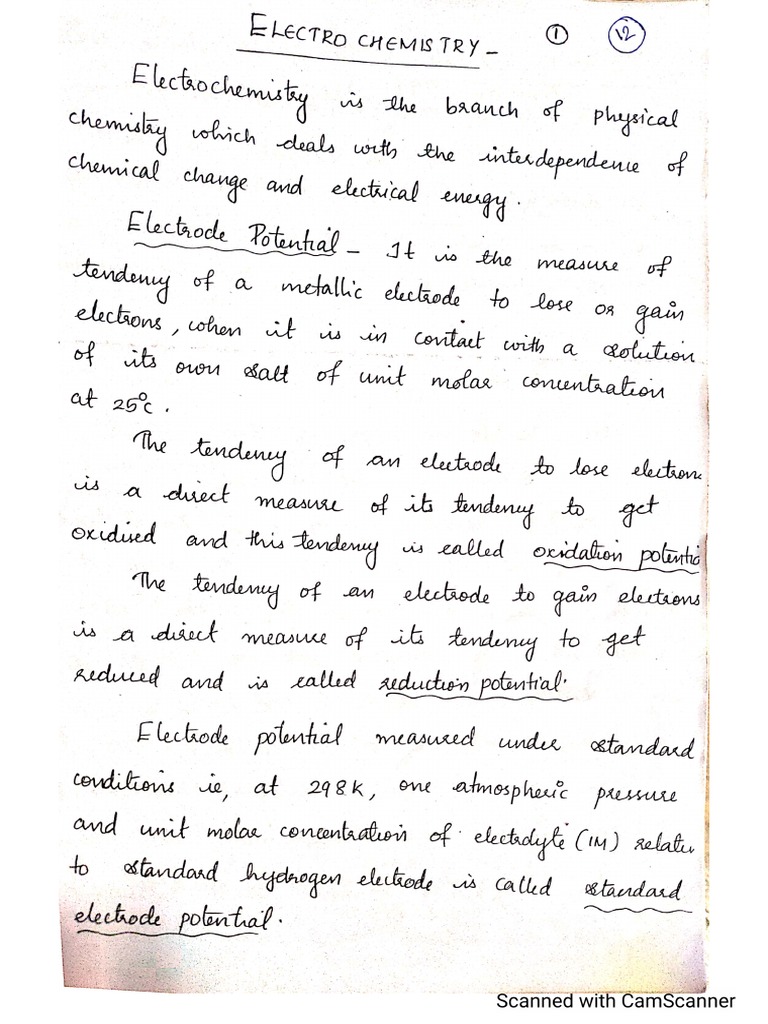 ELECTRO CHEMISTRY - 1 12
Electrochemistry is the branch of physical
chemistry which deals with the interdependence of
chemical change and electrical energy.
Electrode Potential - It is the measure of
tendency of a metallic electrode to lose or gain
electrons, when it is in contact with a solution
of its own salt of unit molar concentration
at 25°C.
The tendency of an electrode to lose electron
is a direct measure of its tendency to get
oxidised and this tendency is called oxidation potentia
The tendency of an electrode to gain electrons
is a direct measure of its tendency to get
reduced and is called reduction potential.
Electrode potential measured under standard
conditions ie, at 298K, one atmospheric pressure
and unit molar concentration of electrolyte (1M) relativ
to standard hydrogen electrode is called standard
electrode potential.
Scanned with CamScanner